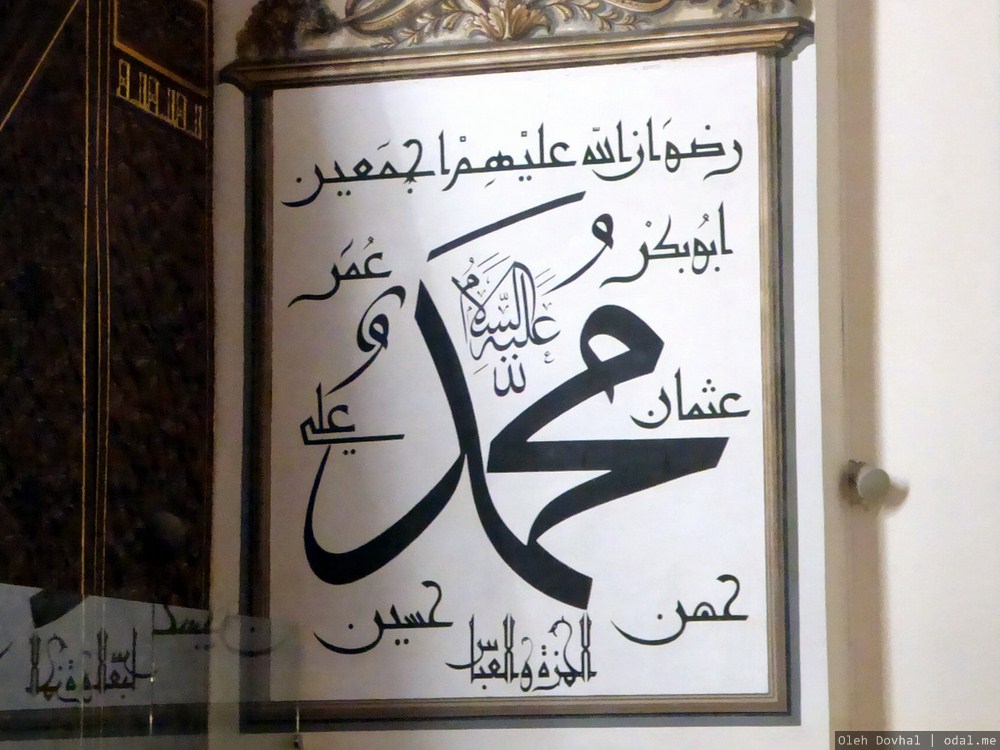 رضوان الله عليهم اجمعين
ابوبكر
عمر
محمد
عليه السلام
عثمان
علي
حسن
حسين
الحمزة والعباس
Oleh Dovhal | odal.me